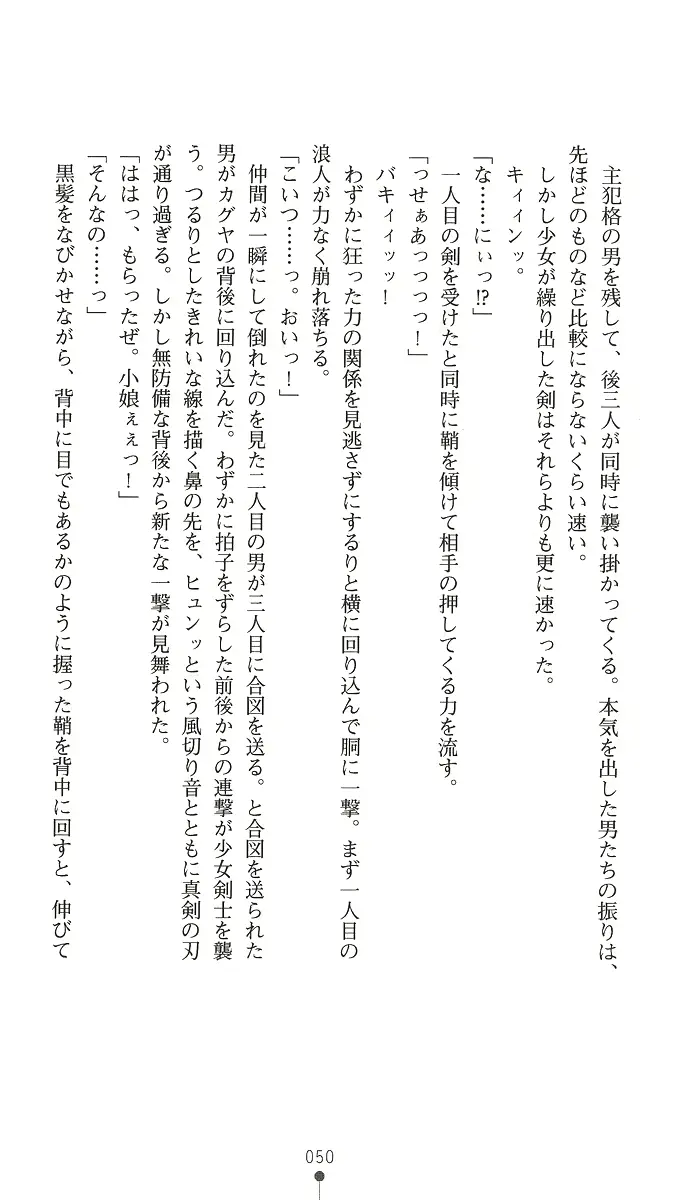 主犯格の男を残して、後三人が同時に襲い掛かってくる。本気を出した男たちの振りは、
先ほどのものなど比較にならないくらい速い。
しかし少女が繰り出した剣はそれらよりも更に速かった。
キィィンッ。
「な……にぃっ!?」
一人目の剣を受けたと同時に鞘を傾けて相手の押してくる力を流す。
「っせぁあっっっっ！」
バキィィッッ！
わずかに狂った力の関係を見逃さずにするりと横に回り込んで胴に一撃。まず一人目の
浪人が力なく崩れ落ちる。
「こいつ……っ。おいっ！」
仲間が一瞬にして倒れたのを見た二人目の男が三人目に合図を送る。と合図を送られた
男がカグヤの背後に回り込んだ。わずかに拍子をずらした前後からの連撃が少女剣士を襲
う。つるりとしたきれいな線を描く鼻の先を、ヒュンッという風切り音とともに真剣の刃
が通り過ぎる。しかし無防備な背後から新たな一撃が見舞われた。
「ははっ、もらったぜ。小娘ぇぇっ！」
「そんなの……っ」
黒髪をなびかせながら、背中に目でもあるかのように握った鞘を背中に回すと、伸びて
050